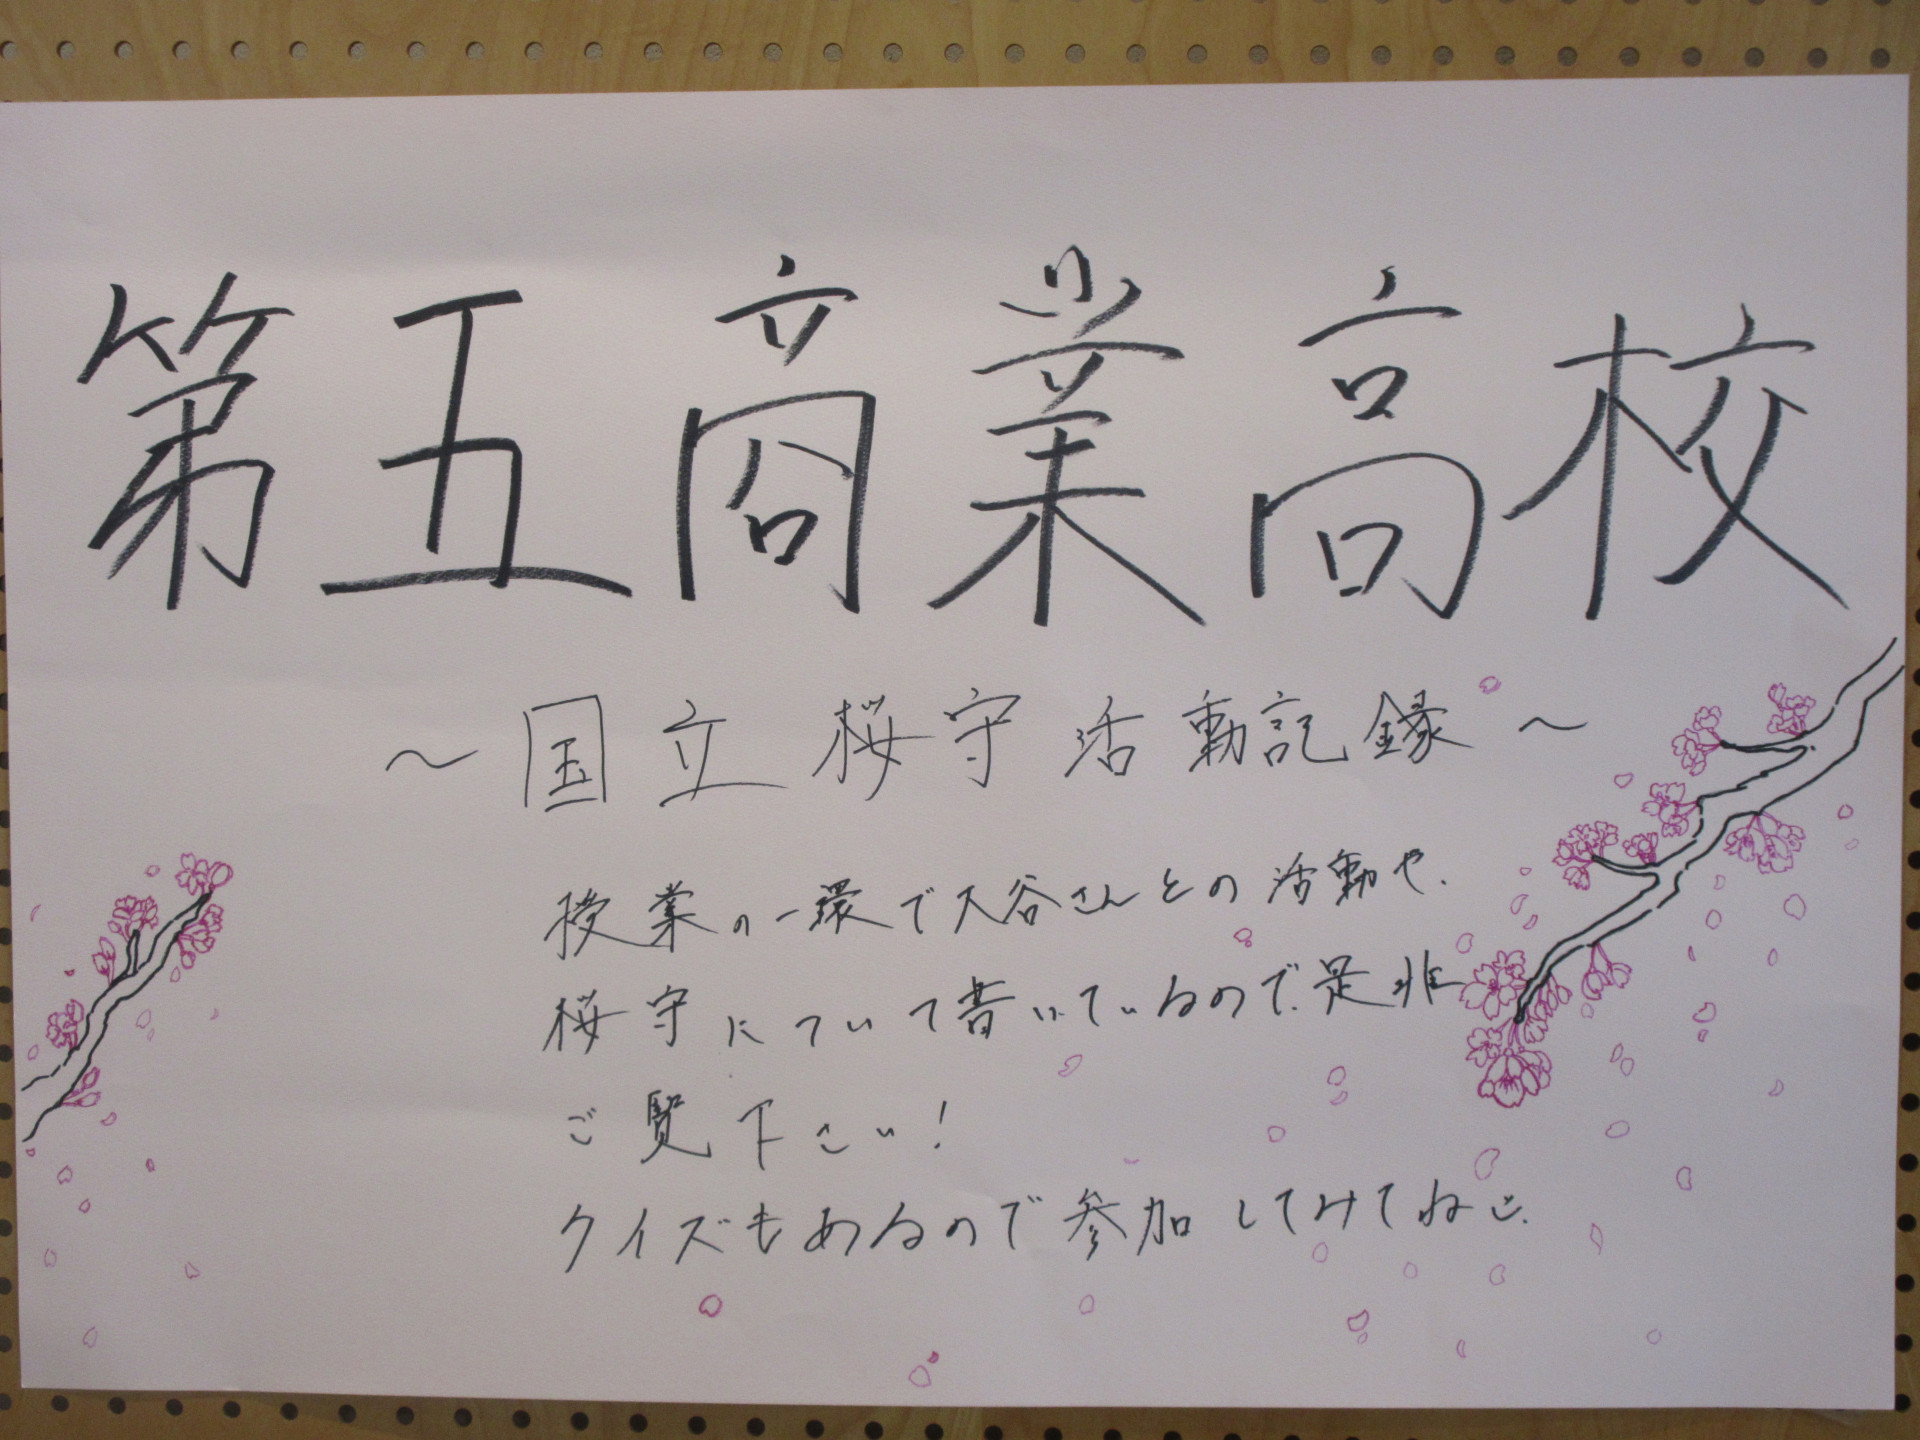 第五商業高校
～国立桜守活動記録～
授業の一環で大谷さんとの活動や、
桜守について書いているので、是非
ご覧下さい！
クイズもあるので参加してみてね